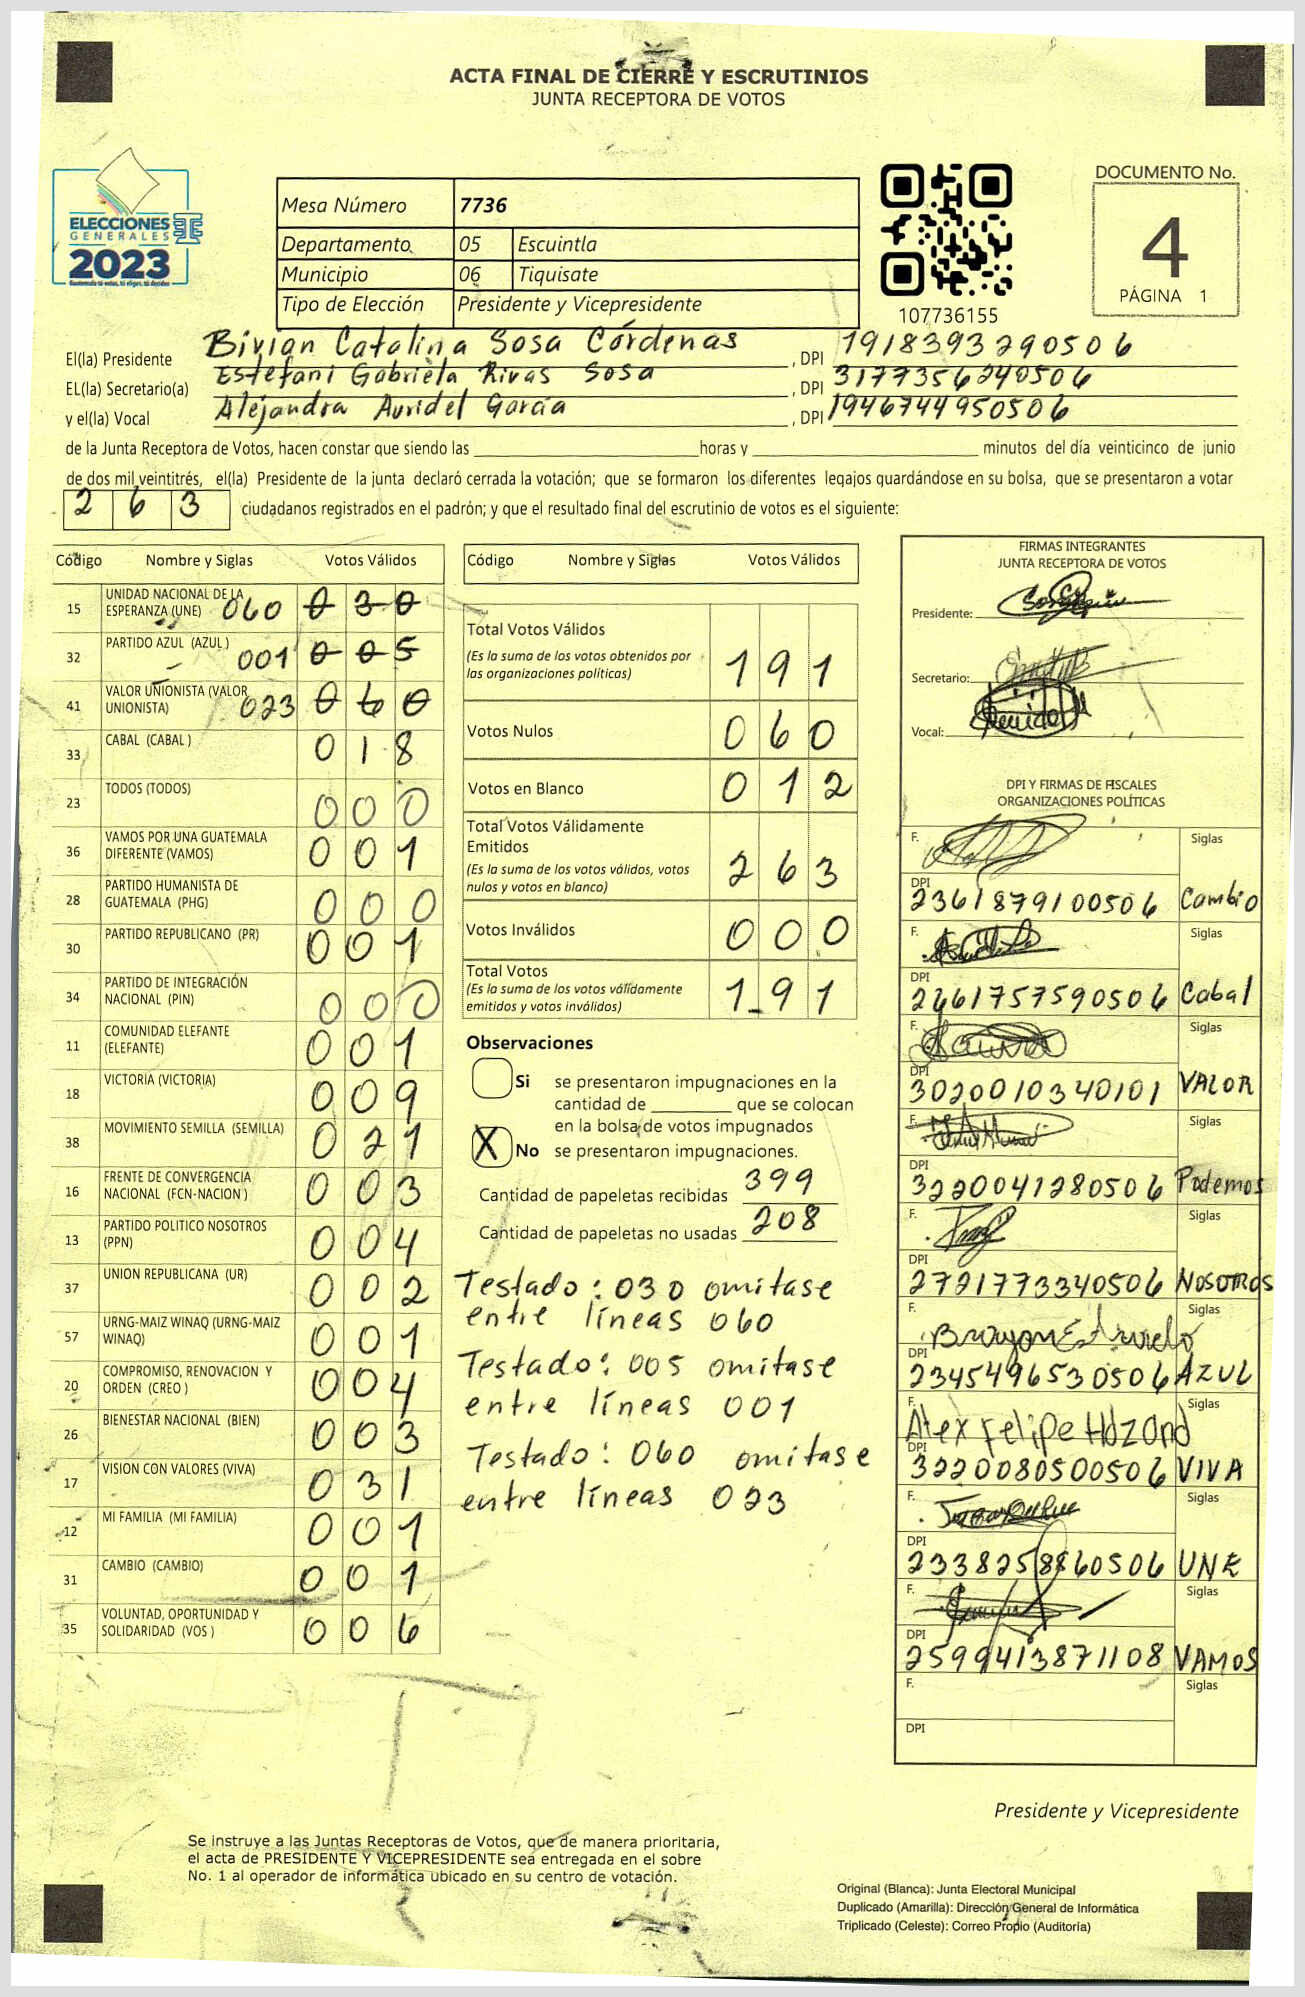 ACTA FINAL DE CIERRE Y ESCRUTINIOS
JUNTA RECEPTORA DE VOTOS
ELECCIONES
GENERALES
2023
Guatemala tú votas, tú eliges, tú decides
TSE
Mesa Número 7736
Departamento 05 Escuintla
Municipio 06 Tiquisate
Tipo de Elección Presidente y Vicepresidente
107736155
DOCUMENTO No.
4
PÁGINA 1
El(la) Presidente Bivian Catalina Sosa Córdenas , DPI 1918393290506
EL(la) Secretario(a) Estefani Gabriela Rivas Sosa , DPI 3177356240506
y el(la) Vocal Alejandra Auridel García , DPI 1946744950506
de la Junta Receptora de Votos, hacen constar que siendo las horas y minutos del día veinticinco de junio
de dos mil veintitrés, el(la) Presidente de la junta declaró cerrada la votación; que se formaron los diferentes legajos guardándose en su bolsa, que se presentaron a votar
263 ciudadanos registrados en el padrón; y que el resultado final del escrutinio de votos es el siguiente:
Código Nombre y Siglas Votos Válidos
15 UNIDAD NACIONAL DE LA
ESPERANZA (UNE) 060 030
32 PARTIDO AZUL (AZUL) 001 005
41 VALOR UNIONISTA (VALOR
UNIONISTA) 023 060
33 CABAL (CABAL) 018
23 TODOS (TODOS) 000
36 VAMOS POR UNA GUATEMALA
DIFERENTE (VAMOS) 001
28 PARTIDO HUMANISTA DE
GUATEMALA (PHG) 000
30 PARTIDO REPUBLICANO (PR) 001
34 PARTIDO DE INTEGRACIÓN
NACIONAL (PIN) 000
11 COMUNIDAD ELEFANTE
(ELEFANTE) 001
18 VICTORIA (VICTORIA) 009
38 MOVIMIENTO SEMILLA (SEMILLA) 021
16 FRENTE DE CONVERGENCIA
NACIONAL (FCN-NACION) 003
13 PARTIDO POLITICO NOSOTROS
(PPN) 004
37 UNION REPUBLICANA (UR) 002
57 URNG-MAIZ WINAQ (URNG-MAIZ
WINAQ) 001
20 COMPROMISO, RENOVACION Y
ORDEN (CREO) 004
26 BIENESTAR NACIONAL (BIEN) 003
17 VISION CON VALORES (VIVA) 031
12 MI FAMILIA (MI FAMILIA) 001
31 CAMBIO (CAMBIO) 001
35 VOLUNTAD, OPORTUNIDAD Y
SOLIDARIDAD (VOS) 006
Código Nombre y Siglas Votos Válidos
Total Votos Válidos
(Es la suma de los votos obtenidos por
las organizaciones politicas) 191
Votos Nulos 060
Votos en Blanco 012
Total Votos Válidamente
Emitidos
(Es la suma de los votos válidos, votos
nulos y votos en blanco) 263
Votos Inválidos 000
Total Votos
(Es la suma de los votos válidamente
emitidos y votos inválidos) 191
Observaciones
Si se presentaron impugnaciones en la
cantidad de que se colocan
en la bolsa de votos impugnados
X No se presentaron impugnaciones.
Cantidad de papeletas recibidas 399
Cantidad de papeletas no usadas 208
Testado: 030 omitase
entre líneas 060
Testado: 005 omitase
entre líneas 001
Testado: 060 omitase
entre líneas 023
FIRMAS INTEGRANTES
JUNTA RECEPTORA DE VOTOS
Presidente:
Secretario:
Vocal:
DPI Y FIRMAS DE FISCALES
ORGANIZACIONES POLÍTICAS
F. Siglas
DPI
2361879100506 Cambio
F. Siglas
DPI
2661757590506 Cabal
F. Siglas
DPI
3020010340101 VALOR
F. Siglas
DPI
3220041280506 Podemos
F. Siglas
DPI
2721773340506 NOSOTROS
F. Siglas
DPI
2345496530506 AZUL
F. Alex Felipe Siglas
DPI
3220080500506 VIVA
F. Siglas
DPI
2338258860506 UNE
F. Siglas
DPI
2599413871108 VAMOS
F. Siglas
DPI
Presidente y Vicepresidente
Se instruye a las Juntas Receptoras de Votos, que de manera prioritaria,
el acta de PRESIDENTE Y VICEPRESIDENTE sea entregada en el sobre
No. 1 al operador de informática ubicado en su centro de votación.
Original (Blanca): Junta Electoral Municipal
Duplicado (Amarilla): Dirección General de Informática
Triplicado (Celeste): Correo Propio (Auditoría)